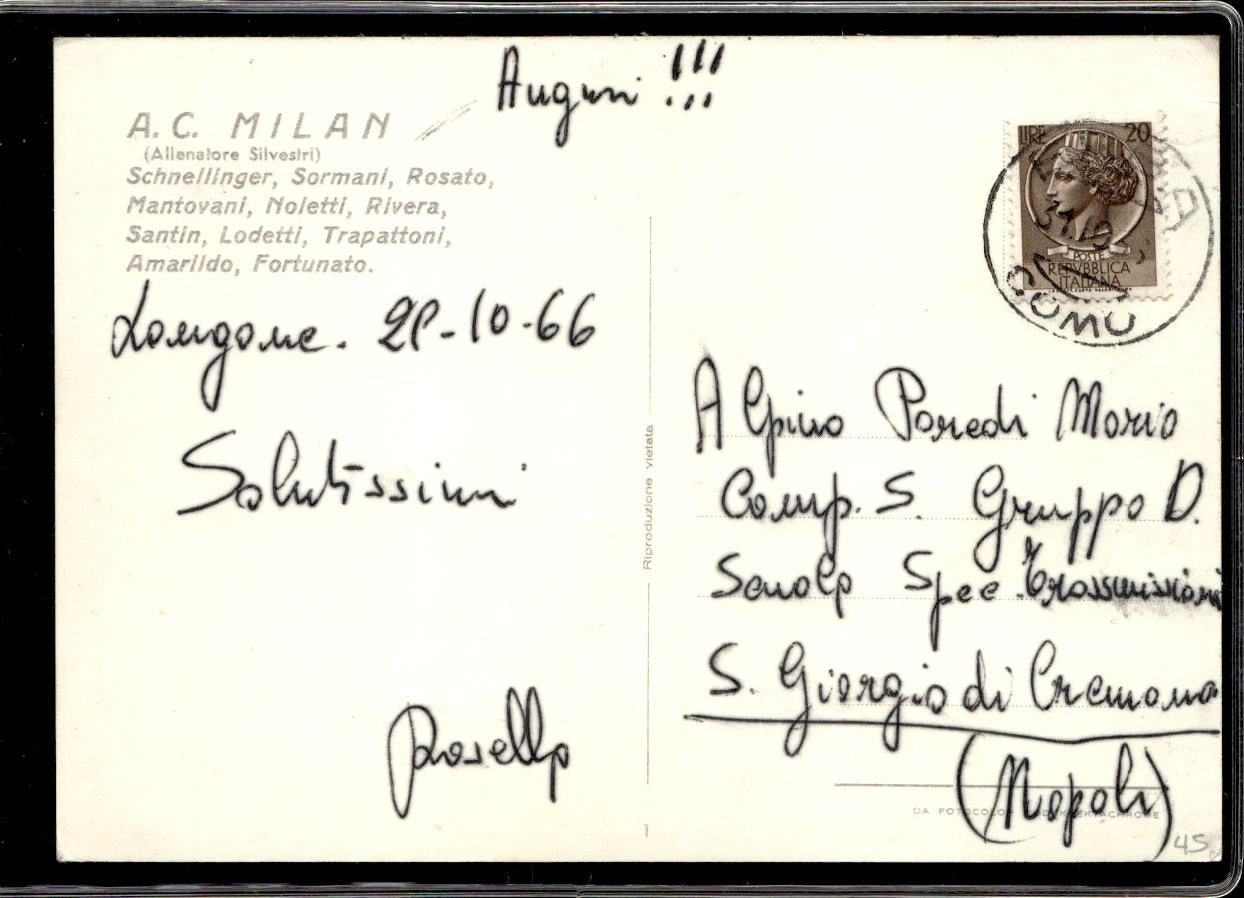 Auguri !!!
A. C. MILAN
(Allenatore Silvestri)
Schnellinger, Sormani, Rosato,
Mantovani, Noletti, Rivera,
Santin, Lodetti, Trapattoni,
Amarildo, Fortunato.
Longone. 28-10-66
Salutissimi
Rosella
Riproduzione vietata
LIRE 20
POSTE
REPVBBLICA
ITALIANA
COMO
Alpino Paredi Mario
Comp. S. Gruppo D.
Scuola Spec Trasmissioni
S. Giorgio di Cremona
(Napoli)
DA FOTOCOLOR
45